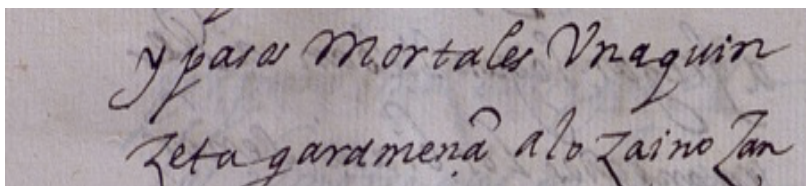 y pasos Mortales Vna quin
zeta gardmeña a lo zaino zan